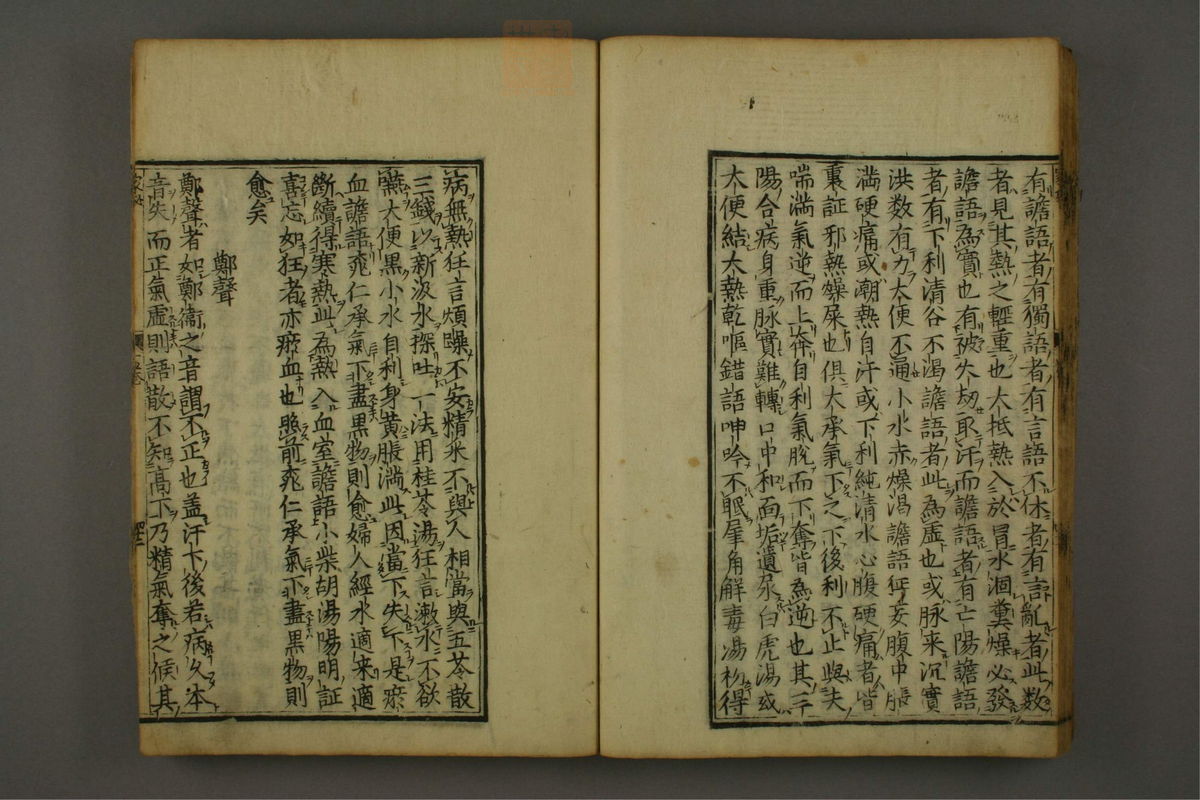 有譫語者有獨語者有言語不休者有言乱者此数
者見其熱之輕重也大抵熱入於胃水涸糞燥必發
譫語為實也有被火劫取汗而譫語者有亡陽譫語
者有下利清谷不渇譫語者此為虚也或脉来沉實
洪数有力大便不通小水赤燥渇譫語狂妄腹中脹
満硬痛或潮熱自汗或下利純清水心腹硬痛者皆
裏証邪熱燥屎也俱大承氣下之下後利不止與夫
喘満氣逆而上奔自利氣脫而下奪皆為逆也其三
陽合病身重脉實難轉口中和面垢遺尿白虎湯或
大便結大熱乾嘔錯語呻吟不眠犀角解毒湯初得
病無熱狂言煩躁不安精采不與人相當與五苓散
三錢以新汲水探吐一法用桂苓湯狂言漱水不欲
嚥大便黒小水自利身黄脹満此因當下失下是瘀
血譫語桃仁承氣下盡黒物則愈婦人經水適来適
断續得寒熱此為熱入血室譫語小柴胡湯陽明証
喜忘如狂者亦瘀血也照前桃仁承氣下盡黒物則
愈矣
鄭聲
鄭聲者如鄭衞之音謂不正也盖汗下後若病久本
音失而正氣虚則語散不知高下乃精氣奪之候其